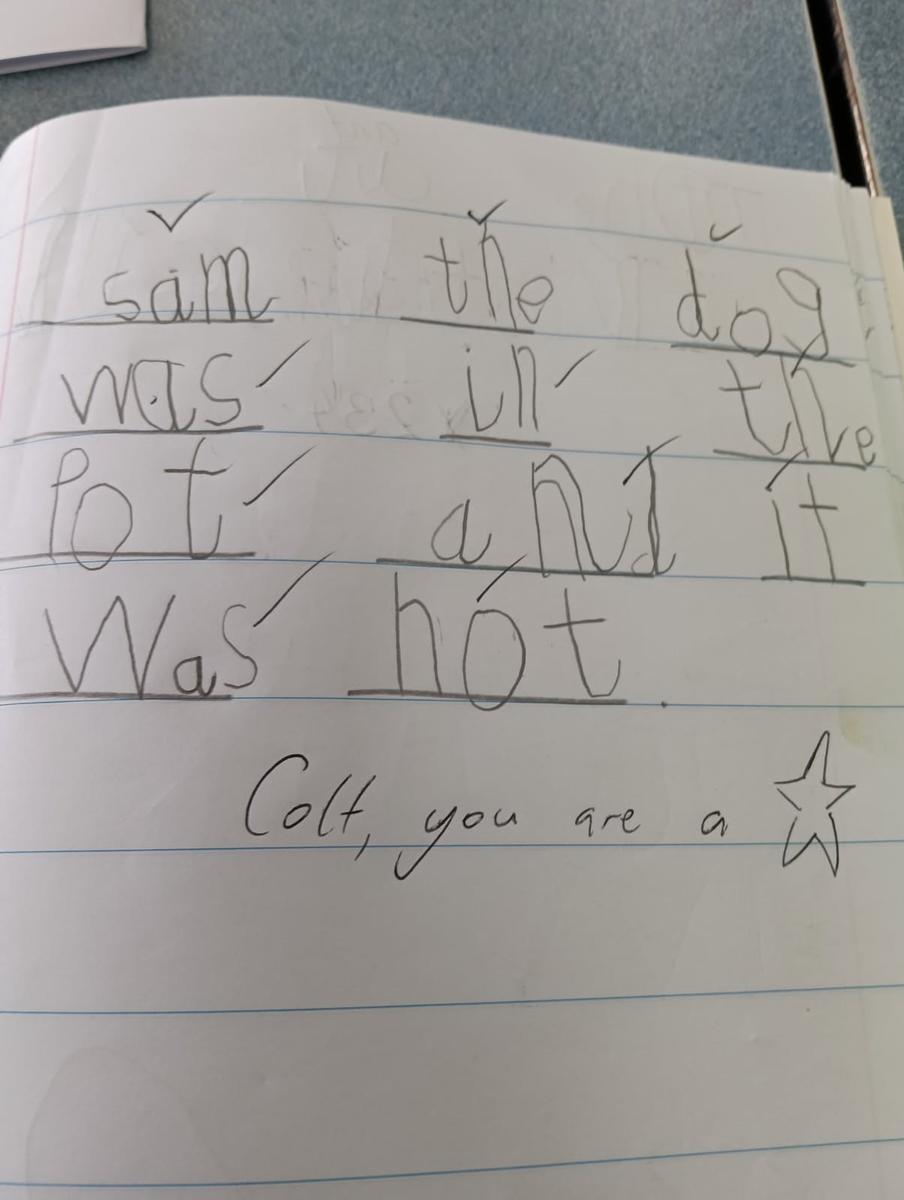 sam the dog
was in the
Pot and it
Was hot.
Colt, you are a